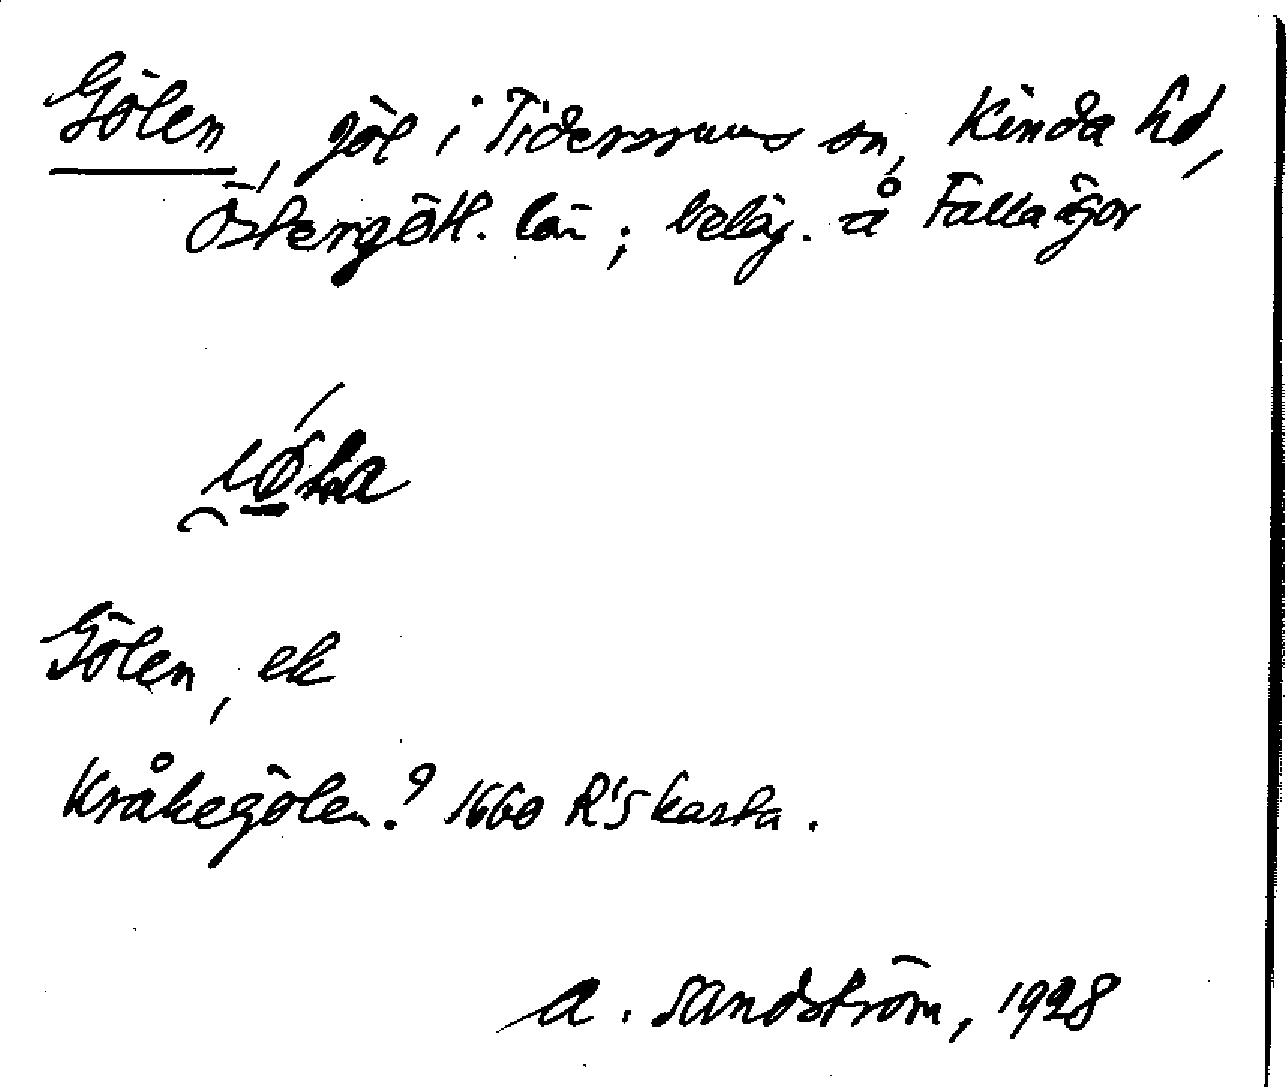 Gölen, göl i Tidersrums sn, Kinda hd,
Östergötl. län; beläg. å Fallaägor
Gölen, ek
Kråkegölen? 1660 R'S karta.
A. Sandström, 1928